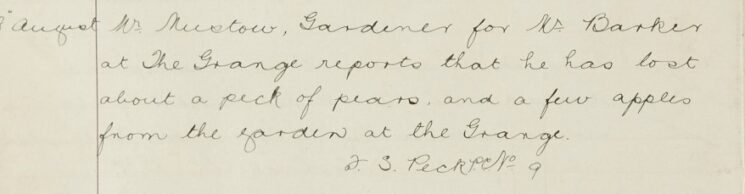 August Mr. Mustow, Gardener for Mr. Barker
at The Grange reports that he has lost
about a peck of pears. and a few apples
from the garden at the Grange.
S. Peck P.C. No 9